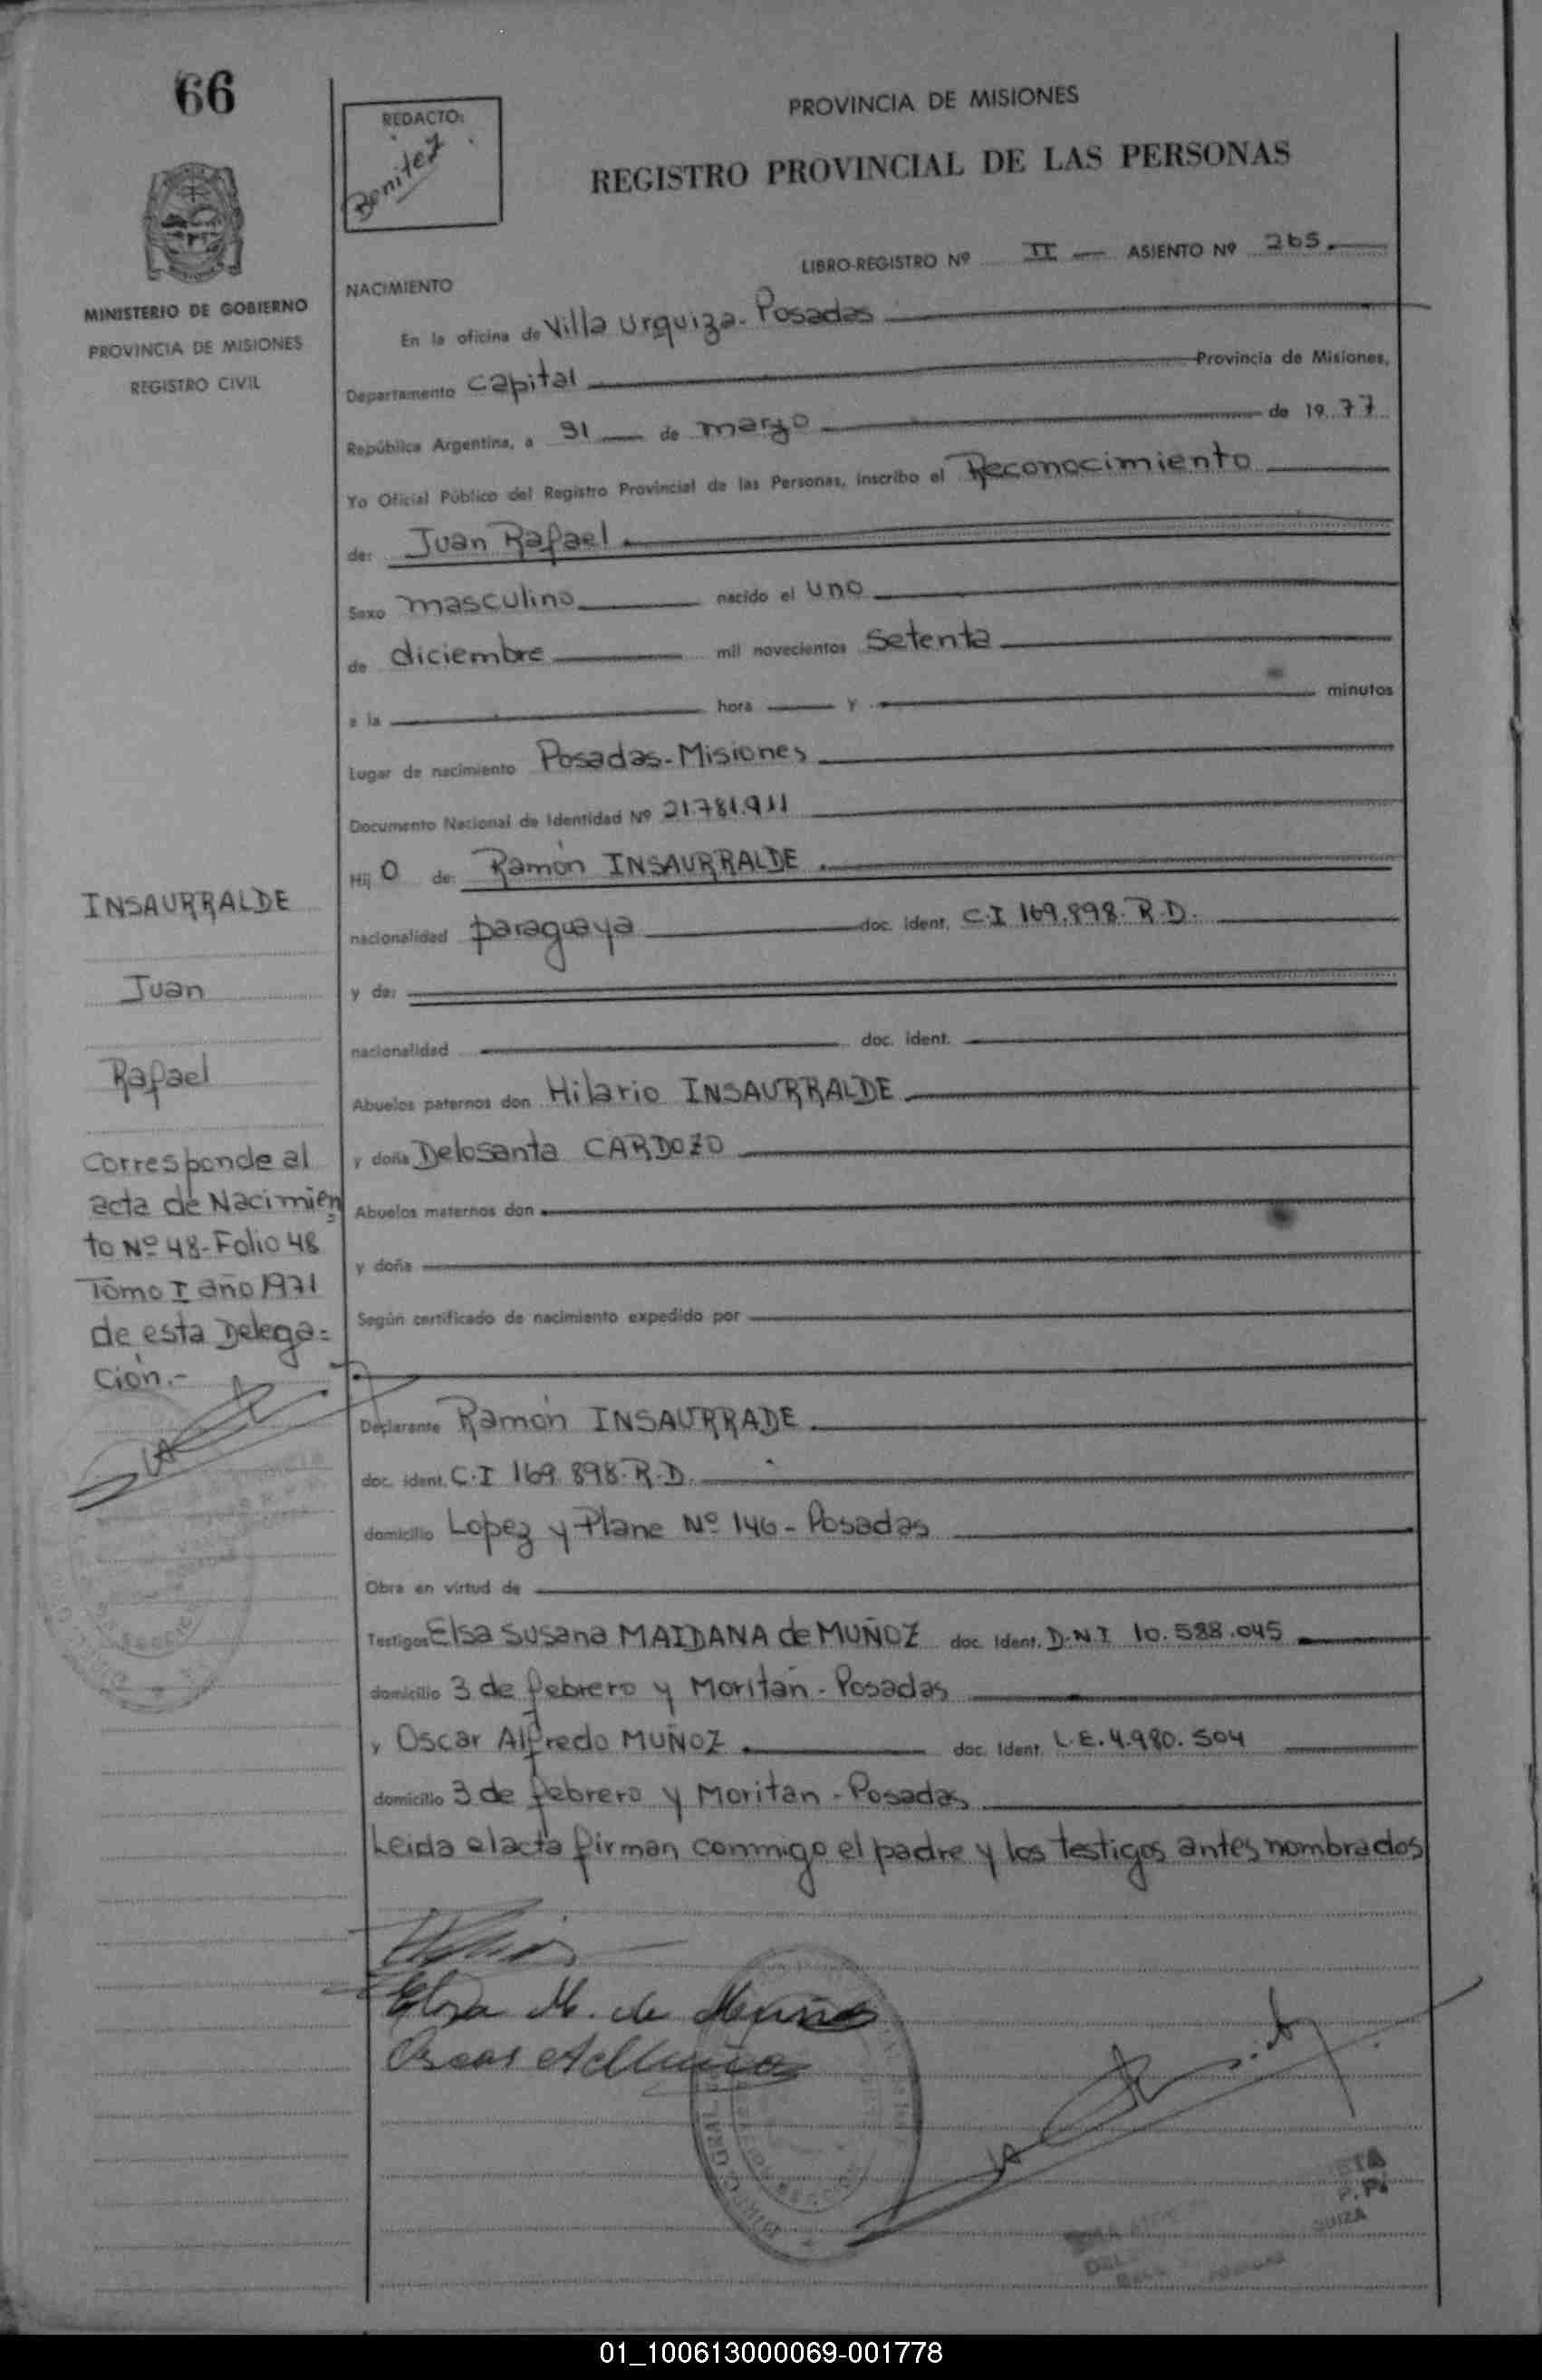 66
REDACTO:
Benitez
PROVINCIA DE MISIONES
REGISTRO PROVINCIAL DE LAS PERSONAS
LIBRO-REGISTRO Nº II — ASIENTO Nº 265.
MINISTERIO DE GOBIERNO
PROVINCIA DE MISIONES
REGISTRO CIVIL
NACIMIENTO
En la oficina de Villa Urquiza-Posadas
Departamento Capital Provincia de Misiones,
República Argentina, a 31 de marzo de 1977
Yo Oficial Público del Registro Provincial de las Personas, inscribo el Reconocimiento
de: Juan Rafael.
Sexo masculino nacido el uno
de diciembre mil novecientos setenta
a la hora y minutos
Lugar de nacimiento Posadas-Misiones
Documento Nacional de Identidad Nº 21.781.911
Hij o de: Ramón INSAURRALDE.
nacionalidad paraguaya doc. ident. C.I 169.898. R.D.
y de:
nacionalidad doc. ident.
Abuelos paternos don Hilario INSAURRALDE
y doña Delosanta CARDOZO
Abuelos maternos don
y doña
Según certificado de nacimiento expedido por
Declarante Ramón INSAURRADE
doc. ident. C.I 169.898. R.D.
domicilio Lopez y Plane Nº 146 - Posadas
Obra en virtud de
Testigos Elsa Susana MAIDANA de MUÑOZ doc. Ident. D.N.I 10.588.045
domicilio 3 de febrero y Moritán - Posadas
y Oscar Alfredo MUÑOZ doc. Ident. L.E. 4.980.504
domicilio 3 de febrero y Moritan - Posadas
Leida el acta firman conmigo el padre y los testigos antes nombrados
INSAURRALDE
Juan
Rafael
Corresponde al
acta de Nacimien
to Nº 48-Folio 48
Tomo I año 1971
de esta Delega=
ción.-
Elsa M. de Muñoz
Oscar A Muñoz
01_100613000069-001778